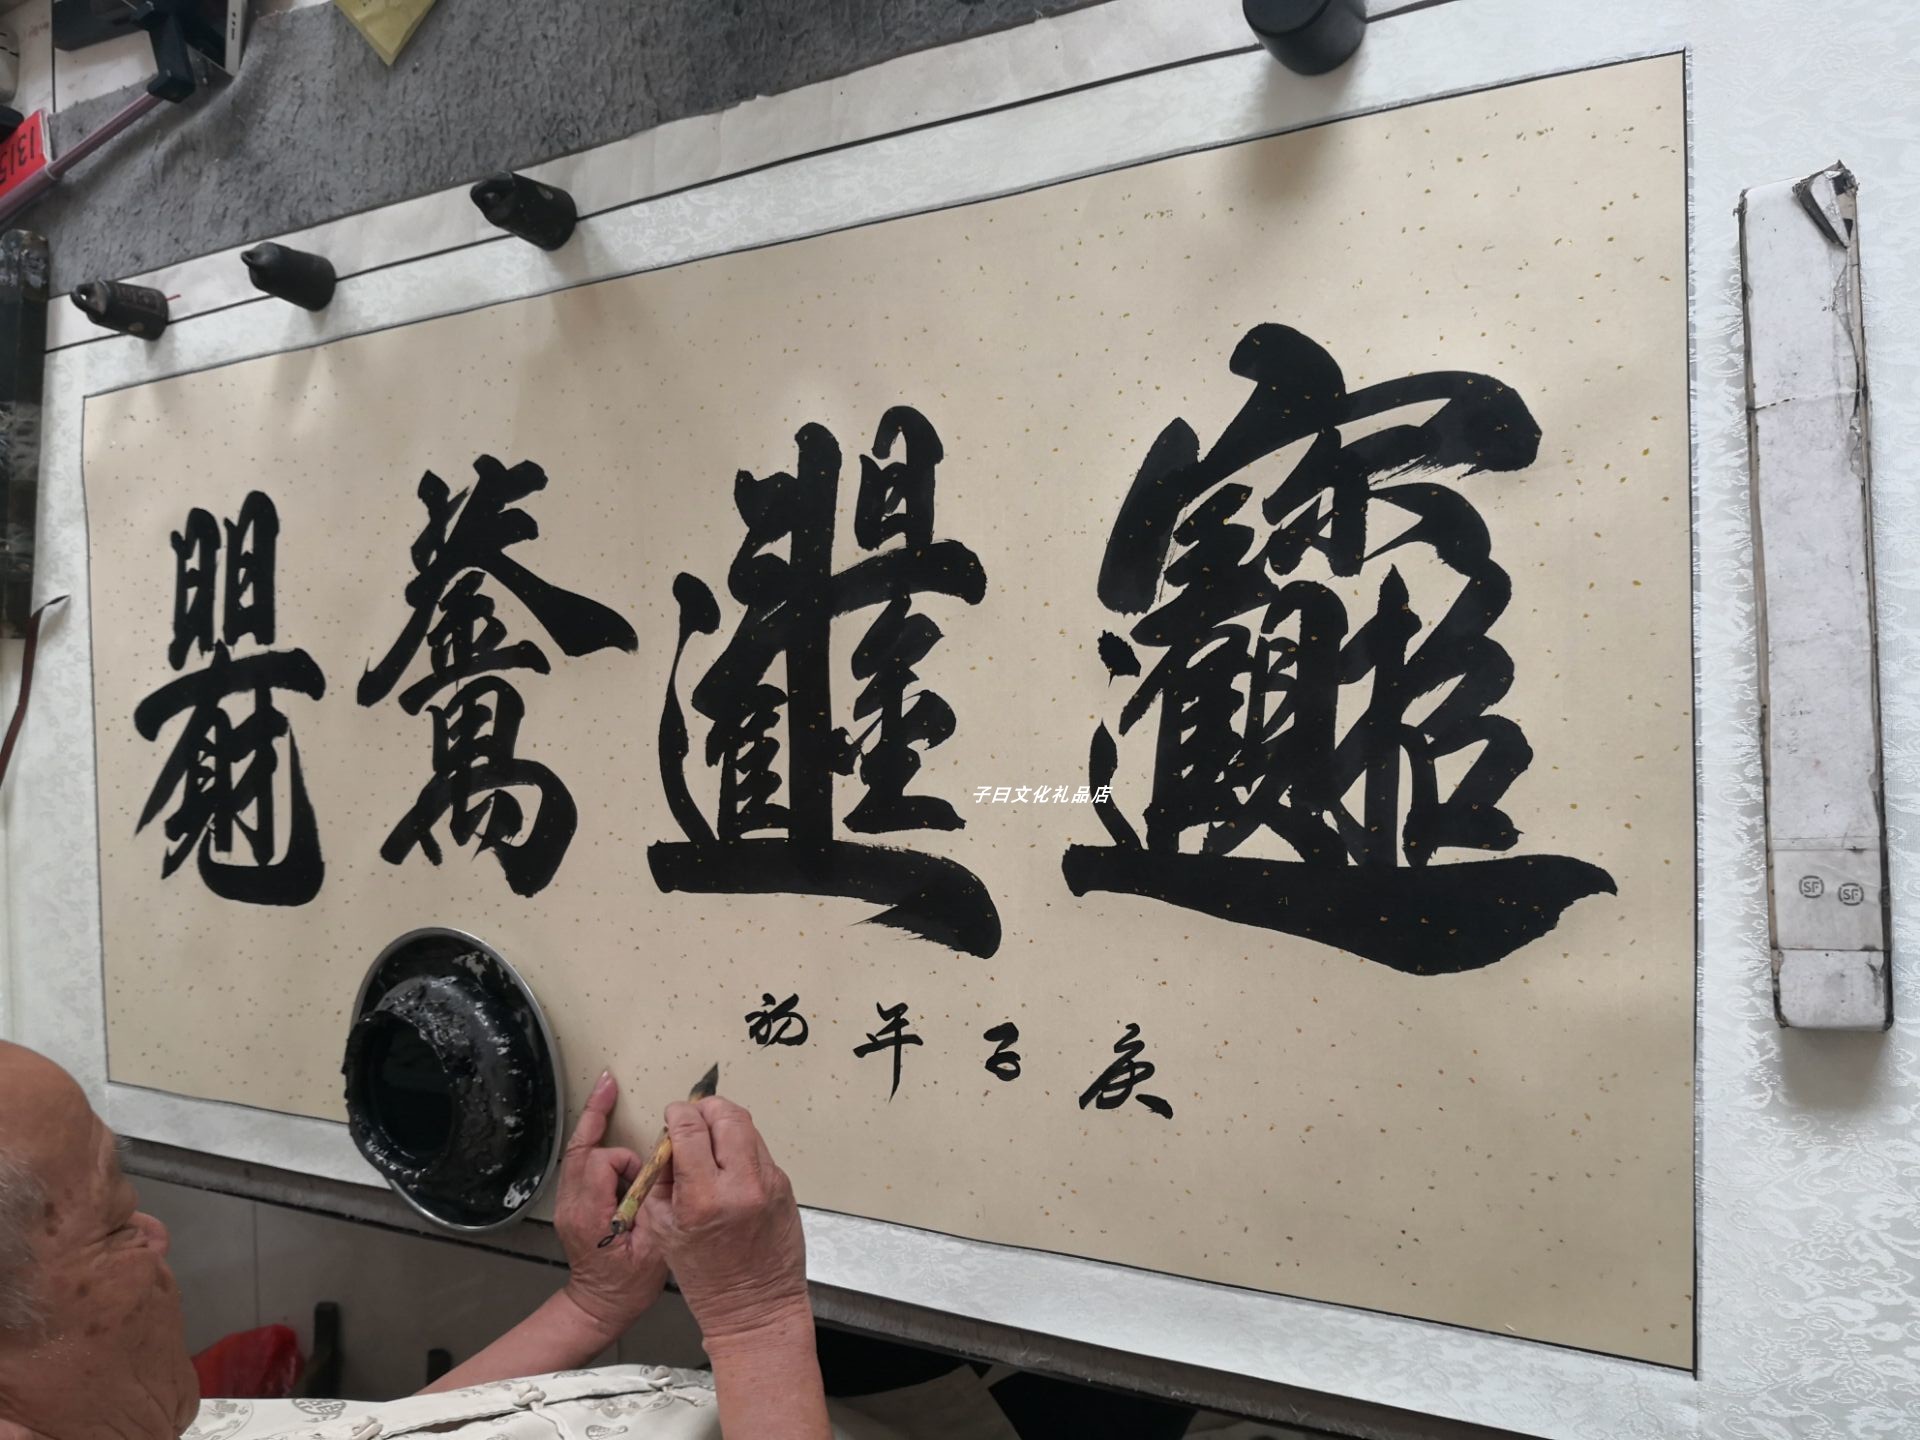 招財進寶 日進斗金 黃金萬兩 日日有見財
庚子年初
子曰文化礼品店
SF SF